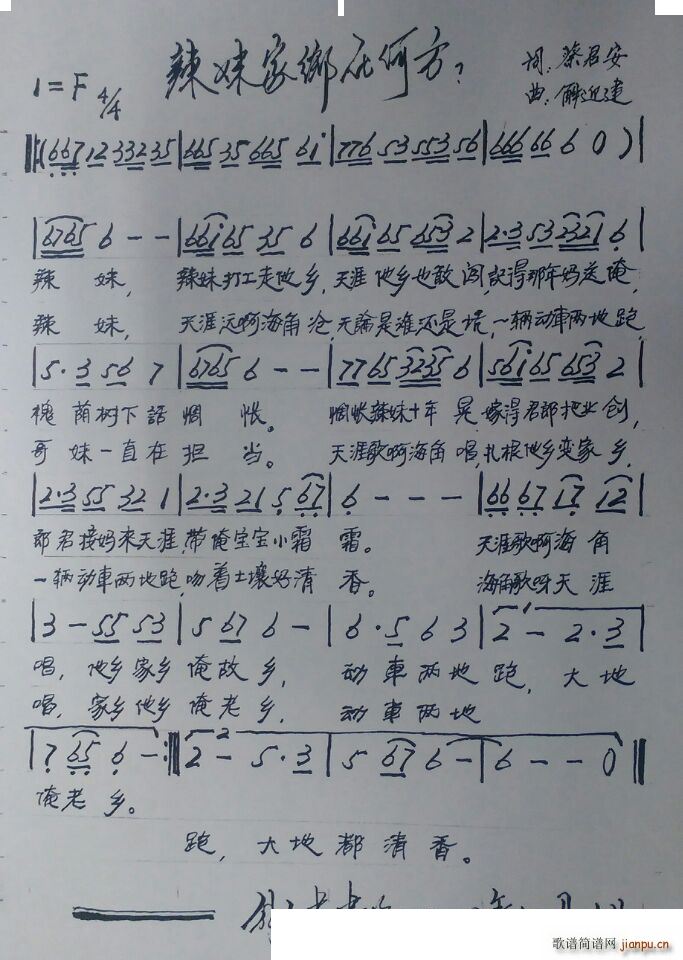 辣妹家鄉在何方？
1=F 4/4
词:蔡君安
曲:解近建
‖:(667 12 332 35 | 665 35 665 61 | 776 53 553 56 | 666 66 6 0 ) |
| 6765 6 - - | 661 65 35 6 | 661 65 653 2 | 2·3 53 2321 6
辣 妹， 辣妹打工走他乡，天涯他乡也敢闯，記得那年妈送俺，
辣 妹， 天涯远啊海角沧，无論是谁还是 ，一辆动車两地跑，
| 5·3 56 7 | 6765 6 - - | 77 65 3235 6 | 561 65 653 2 |
槐荫树下話惆 怅。 惆怅辣妹十年 晃，嫁得君郎把业创，
哥妹一直在担 当。 天涯歌啊海角唱，扎根他乡变家乡，
| 2·3 55 32 1 | 2·3 21 5 67 | 6 - - - | 66 67 17 12 |
郎君接妈来天涯，带俺宝宝小霜 霜。 天涯歌啊海角
一辆动車两地跑，吻着土壤好清 香。 海角歌呀天涯
| 3 - 55 53 | 5 67 6 - | 6·5 6 3 | 2 - 2·3
唱，他乡家乡俺故乡， 动車两地跑，大地
唱，家乡他乡俺老乡， 动車两地
| 7 65 6 - :‖ 2 - 5·3 | 5 67 6 - | 6 - - 0 ‖
俺老乡。
跑，大地都清香。
歌谱简谱网 jianpu.cn